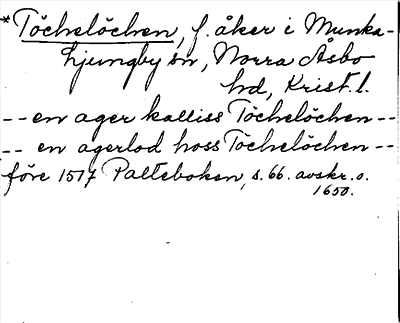 *Töchelöchen, f. åker i Munka-
Ljungby sn, Norra Åsbo
hd, Krist. l.
-- en ager kalliss Töchelöchen --
-- en agerlod hoss Töchelöchen --
före 1517 Palteboken, s. 66. avskr. o.
1650.